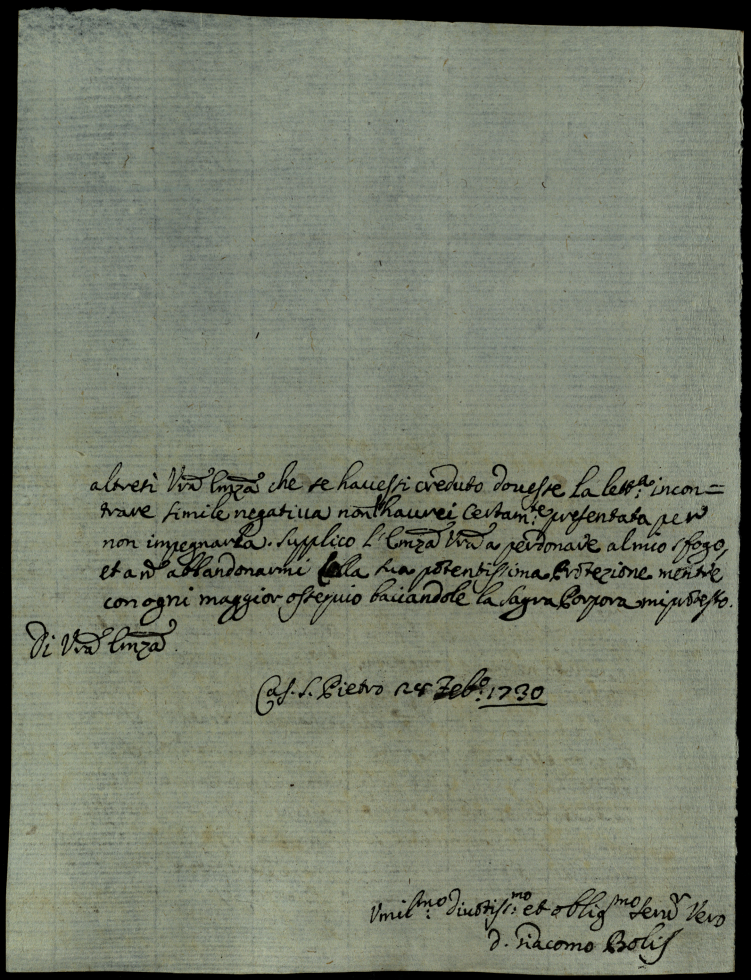 altresì Vrã Emzã che se havessi creduto dovesse la lettrã incon=
trare simile negativa non haurei certamte presentata per
non impegnarla. Supplico L'Emzã Vrã a perdonare al mio sfogo,
et a nõ abbandonarmi della sua potentissima Protezione mentre
con ogni maggior ossequio baciandole la Sagra Porpora mi protesto.
Di Vrã Emzã.
Cas. S. Pietro Febo. 1730
Umilmo Divotismo et obligmo Servr Vero
d. Giacomo Bolis